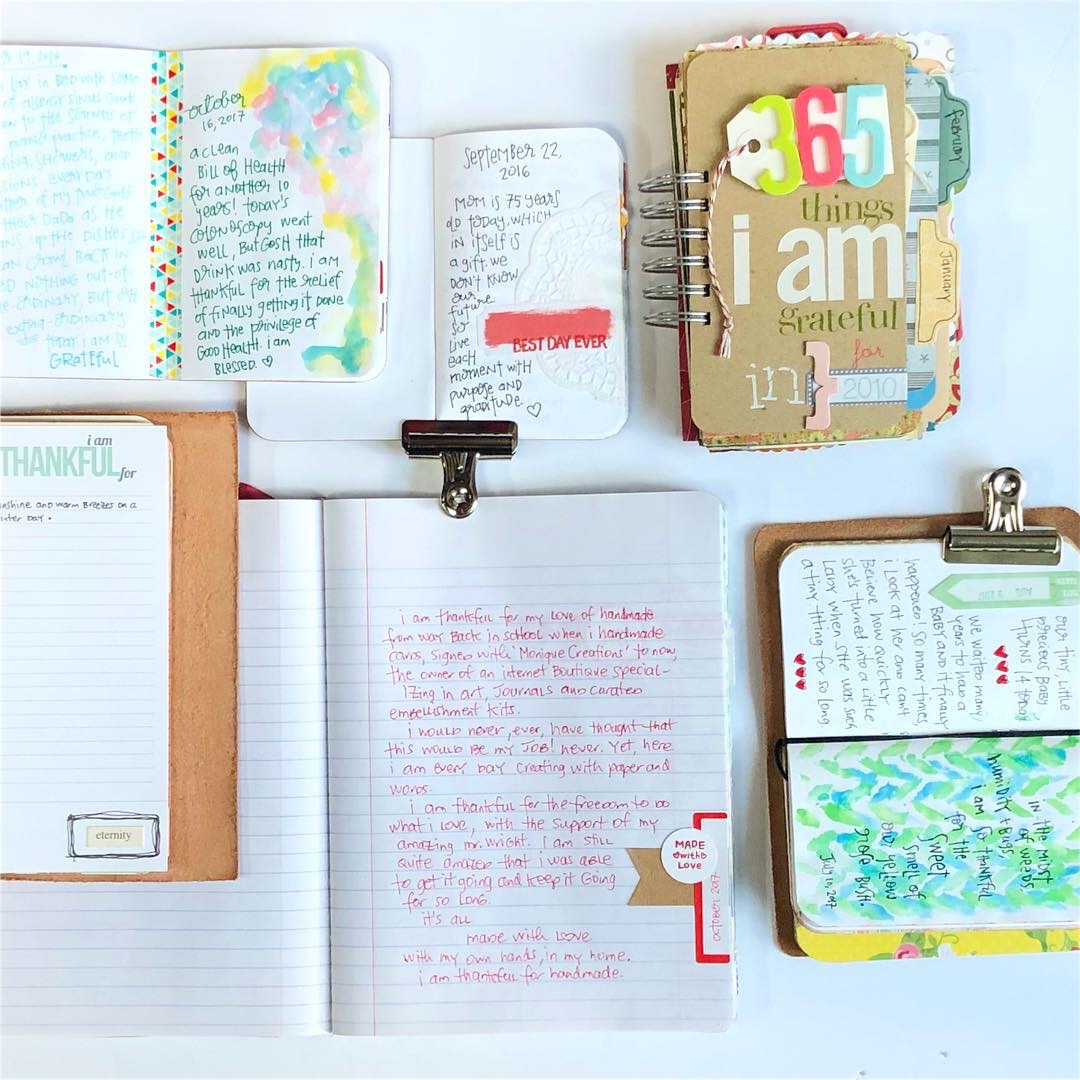 19, 2016
lay in bed with some
of allergy sinus
to the sounds of
piano practice, teeth
showers, and
every day
of my two girls
their Dada as he
up the dishes
crawl back in
nothing out-of-
-ordinary, but oh
extra-ordinary
today i am so
GRATEFUL
october
16, 2017
a clean
Bill of Health
for another 10
years! Today's
colonoscopy went
well, But GOSH that
Drink was nasty. i am
thankful for the relief
of finally getting it done
and the privilege of
Good Health. i am
Blessed. ♡
September 22,
2016
Mom is 75 years
old today, which
in itself is
a gift. we
don't know
our
future
so
live
each
moment with
purpose and
gratitude. ♡
BEST DAY EVER
365
things
i am
grateful
for
in } 2010
february
January
i am
THANKFUL for
sunshine and warm Breezes on a
winter day.
eternity
i am thankful for my love of handmade
from way Back in school when i handmade
cards, signed with 'Monique Creations' to now,
the owner of an internet Boutique special-
izing in art, Journals and curated
embellishment kits.
i would never, ever, have thought that
this would Be my JOB! never. Yet, here
i am every day creating with paper and
words.
i am thankful for the freedom to do
what i love, with the support of my
amazing mr. Wright. I am still
quite amazed that i was able
to get it going and keep it Going
for so long.
it's all
made with Love
with my own hands, in my home.
i am thankful for handmade.
MADE
with
LOVE
OCTOBER 2017
AUG 9 2017
our tiny, little
precious Baby
turns 14 today
we waited many
years to have a
BABY and it finally
happened! So many times
i Look at her and can't
Believe how quickly
she's turned into a little
Lady when she was such
a tiny thing for so long
in the midst
of weeds
humidity + Bugs,
i am so thankful
for the
sweet
smell of
our yellow
rose Bush.
July 10, 2017